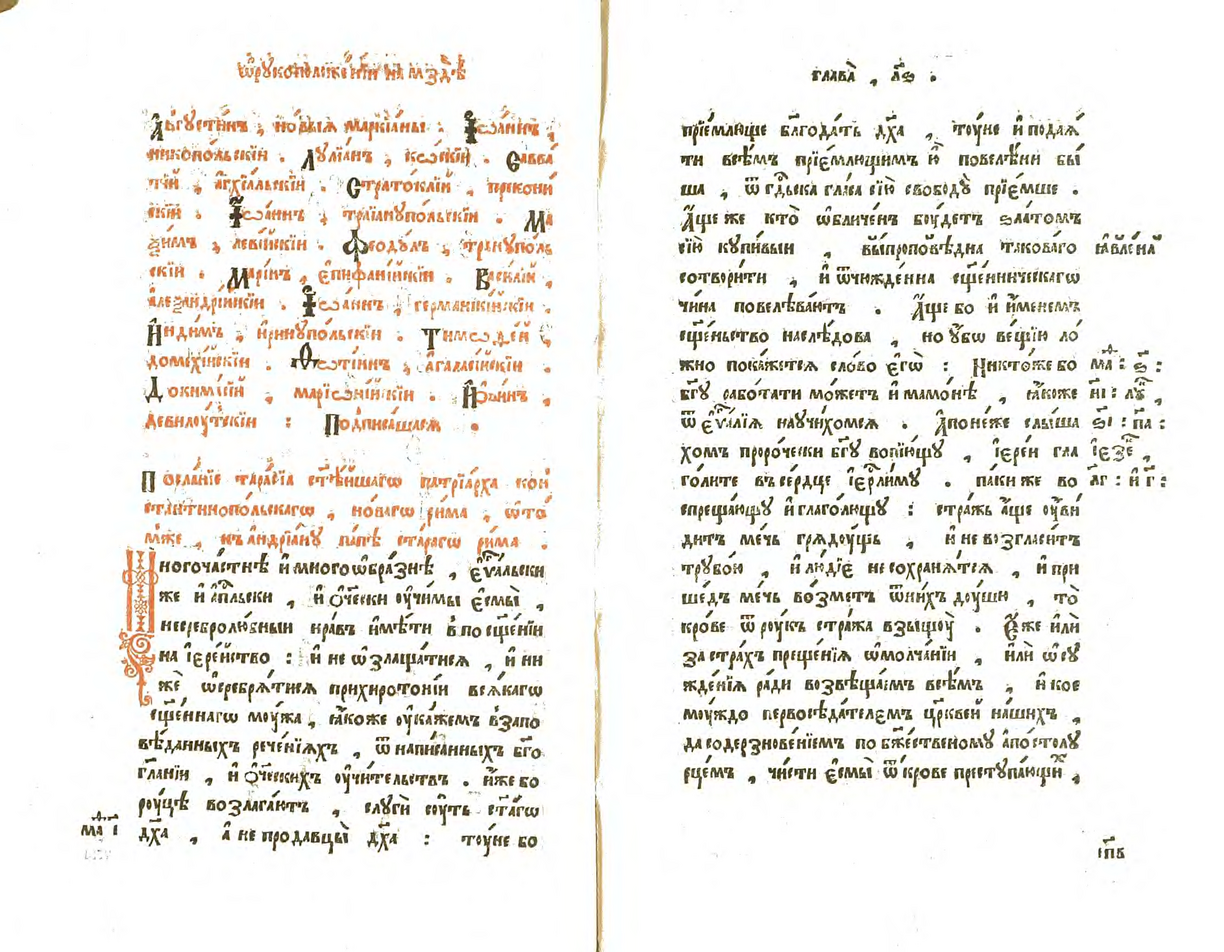 ѡ҆рꙋкоположе́нїи на мздѣ̀
А҆́вгꙋсти́нъ , но́выѧ маркїа́ны . І҆ѡа́ннъ ,
никопо́льскїи . Лꙋлїа́нъ , кѡ́скїи . Савва́
тїи , а҆гхїа́льскїи . Стратокли́и , преконн
скїи . І҆ѡа́ннъ , траїанꙋпо́льскїи . Ма
ѯи́мъ , леві́йскїи . Ѳео́дꙋлъ , транꙋпо́ль
скїи . Мари́нъ , є҆пифані́йскїи . Васи́лїи ,
а҆леѯандрі́йскїи . І҆ѡа́ннъ , германїкі́йскїи .
Ни́димъ , и҆ринꙋпо́льскїи . Тимѡѳе́й ,
домехі́йскїи . Фѡти́нъ , а҆галасі́йскїи .
Докими́сїй , марїѡні́йскїи .
девилоу́тскїи : Подписа́шасѧ .
Посла́нїе тара́сїа ст҃ѣ́йшагѡ патрїа́рха кон
стѧнтинопо́льскагѡ , но́вагѡ ри́ма , ѿто
мꙋ́же , къ андрїа́нꙋ па́пѣ ста́рагѡ ри́ма .
Многоча́стнѣ и҆ многоѡбра́знѣ , є҆ѵⷢ҇льски
же и҆ а҆пⷭ҇льски , и҆ ѻ҆те́чески оу҆чи́мы є҆смы̀ ,
несребролю́бныи нра́въ и҆мѣ́ти в̾ по сщ҃е́нїи
на і҆ере́йство : и҆ не ѡ҆зла́щатисѧ , и҆ ни
жѐ ѡ҆серебрѧ́тисѧ прихирото́нїи всѧ́кагѡ
сщ҃е́ннагѡ моу́жа , ꙗ҆́коже оу҆ка́жемъ в̾запо
вѣ́данныхъ рече́нїѧхъ , ѿ напи́санныхъ бг҃о
гла́нїи , и҆ ѻ҆те́ческихъ оу҆чи́тельствъ . и҆́же бо
роу́цѣ возлага́ютъ , слꙋгѝ соу́ть ст҃а́гѡ
маⷴ҇ і҃
дх҃а , а҆ не продавцы̀ дх҃а : тоу́не бо
глава̀ , л҃ѕ .
прїе́млюще блгода́ть дх҃а , тоу́не и҆ подаѧ́
ти всѣ́мъ прїе́млющимъ ю҆̀ повелѣ́ни бы́
ша , ѿ гдⷭ҇ьска гла́са сїю̀ свобо́дꙋ прїе́мше .
А҆́ще же кто̀ ѡ҆бличе́нъ боу́детъ зла́томъ
сїю̀ кꙋпи́выи , выпроповѣ́дна таково́го ꙗ҆вле́на
сотвори́ти , и҆ ѿчижде́нна сщ҃е́нническагѡ
чи́на повелѣва́ютъ . А҆́ще бо и҆ и҆́менемъ
сщ҃е́ньство наслѣ́дова , но оу҆́бѡ ве́щїю ло́
жно пока́жетсѧ сло́во є҆гѡ̀ : Никто́же бо маⷴ҇ : ѕ҃ :
бг҃ꙋ рабо́тати мо́жетъ и҆ мамо́нѣ , ꙗ҆́коже н҃і : лꙋⷦ҇ ,
ѿ є҆ѵⷢ҇а́лїѧ наꙋчи́хомсѧ . А҆поне́же слы́ша ѕ҃і : па :
хомъ проро́чески бг҃ꙋ вопїю́щꙋ , і҆ере́и гла і҆езеⷦ҇ ,
го́лите въ се́рдце і҆ерⷭ҇ли́мꙋ . паки же во л҃г : и҆ г҃ :
спреща́ющꙋ и҆ глаго́лющꙋ : стра́жь а҆́ще оу҆́ви
дитъ ме́чь грѧдоу́щь , и҆ не возгласи́тъ
трꙋбо́ю , и҆ лю́дїе не сохранѧ́тсѧ , и҆ при
ше́дъ ме́чь во́зметъ ѿ ни́хъ доу́шю , то̀
кро́ве ѿ роу́къ стра́жа взыщоу̀ . Є҆́же и҆лѝ
за стра́хъ преще́нїѧ ѡ҆молча́нїи , и҆лѝ ѡ҆сꙋ
жде́нїѧ ра́ди возвѣща́емъ всѣ́мъ , и҆ кое
моу́ждо первосѣда́телемъ цр҃кве́й на́шихъ ,
да со дерзнове́нїемъ по бжⷭ҇е́ственомꙋ а҆по́столꙋ
рце́мъ , чи́сти є҆смы̀ ѿ кро́ве престꙋпа́ющиⷯ ,
с҃пв